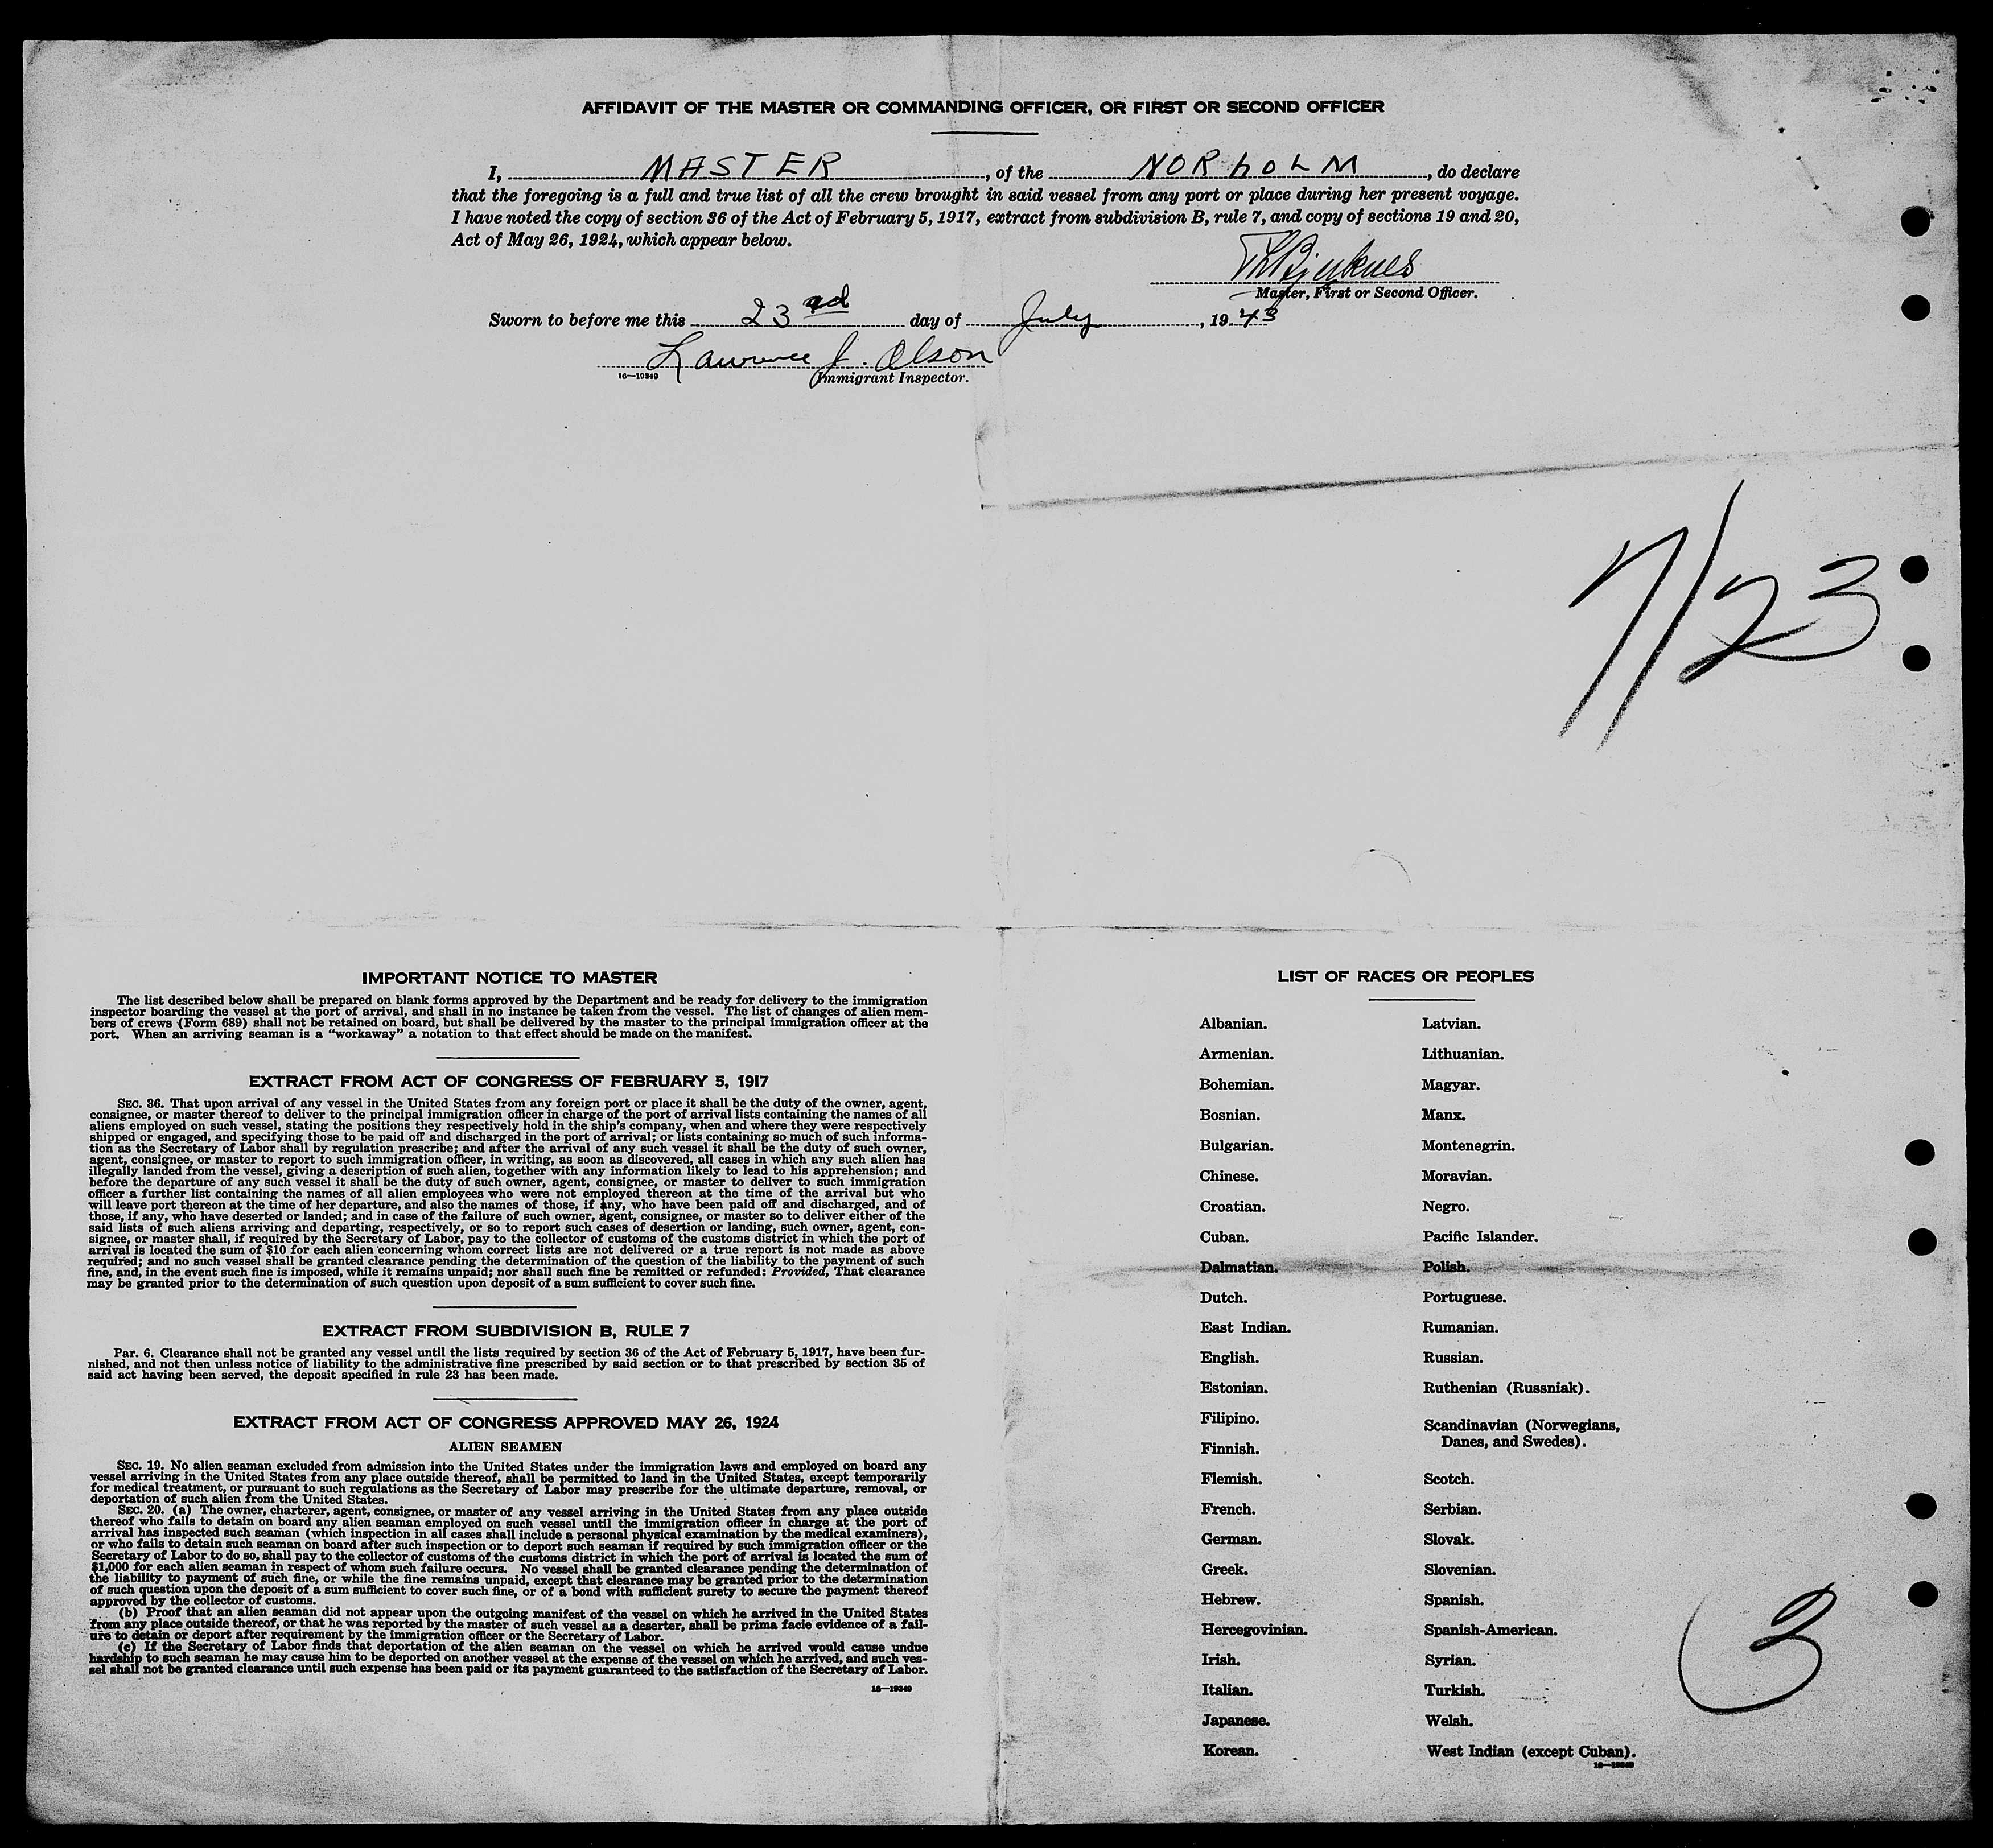 AFFIDAVIT OF THE MASTER OR COMMANDING OFFICER, OR FIRST OR SECOND OFFICER
I, MASTER, of the NORHOLM, do declare
that the foregoing is a full and true list of all the crew brought in said vessel from any port or place during her present voyage.
I have noted the copy of section 36 of the Act of February 5, 1917, extract from subdivision B, rule 7, and copy of sections 19 and 20,
Act of May 26, 1924, which appear below.
Master, First or Second Officer.
Sworn to before me this 23rd day of July, 1943
Lawrence J. Olson
16—19349 Immigrant Inspector.
7/23
IMPORTANT NOTICE TO MASTER
The list described below shall be prepared on blank forms approved by the Department and be ready for delivery to the immigration
inspector boarding the vessel at the port of arrival, and shall in no instance be taken from the vessel. The list of changes of alien mem-
bers of crews (Form 689) shall not be retained on board, but shall be delivered by the master to the principal immigration officer at the
port. When an arriving seaman is a "workaway" a notation to that effect should be made on the manifest.
EXTRACT FROM ACT OF CONGRESS OF FEBRUARY 5, 1917
SEC. 36. That upon arrival of any vessel in the United States from any foreign port or place it shall be the duty of the owner, agent,
consignee, or master thereof to deliver to the principal immigration officer in charge of the port of arrival lists containing the names of all
aliens employed on such vessel, stating the positions they respectively hold in the ship's company, when and where they were respectively
shipped or engaged, and specifying those to be paid off and discharged in the port of arrival; or lists containing so much of such informa-
tion as the Secretary of Labor shall by regulation prescribe; and after the arrival of any such vessel it shall be the duty of such owner,
agent, consignee, or master to report to such immigration officer, in writing, as soon as discovered, all cases in which any such alien has
illegally landed from the vessel, giving a description of such alien, together with any information likely to lead to his apprehension; and
before the departure of any such vessel it shall be the duty of such owner, agent, consignee, or master to deliver to such immigration
officer a further list containing the names of all alien employees who were not employed thereon at the time of the arrival but who
will leave port thereon at the time of her departure, and also the names of those, if any, who have been paid off and discharged, and of
those, if any, who have deserted or landed; and in case of the failure of such owner, agent, consignee, or master so to deliver either of the
said lists of such aliens arriving and departing, respectively, or so to report such cases of desertion or landing, such owner, agent, con-
signee, or master shall, if required by the Secretary of Labor, pay to the collector of customs of the customs district in which the port of
arrival is located the sum of $10 for each alien concerning whom correct lists are not delivered or a true report is not made as above
required; and no such vessel shall be granted clearance pending the determination of the question of the liability to the payment of such
fine, and, in the event such fine is imposed, while it remains unpaid; nor shall such fine be remitted or refunded: Provided, That clearance
may be granted prior to the determination of such question upon deposit of a sum sufficient to cover such fine.
EXTRACT FROM SUBDIVISION B, RULE 7
Par. 6. Clearance shall not be granted any vessel until the lists required by section 36 of the Act of February 5, 1917, have been fur-
nished, and not then unless notice of liability to the administrative fine prescribed by said section or to that prescribed by section 35 of
said act having been served, the deposit specified in rule 23 has been made.
EXTRACT FROM ACT OF CONGRESS APPROVED MAY 26, 1924
ALIEN SEAMEN
SEC. 19. No alien seaman excluded from admission into the United States under the immigration laws and employed on board any
vessel arriving in the United States from any place outside thereof, shall be permitted to land in the United States, except temporarily
for medical treatment, or pursuant to such regulations as the Secretary of Labor may prescribe for the ultimate departure, removal, or
deportation of such alien from the United States.
SEC. 20. (a) The owner, charterer, agent, consignee, or master of any vessel arriving in the United States from any place outside
thereof who fails to detain on board any alien seaman employed on such vessel until the immigration officer in charge at the port of
arrival has inspected such seaman (which inspection in all cases shall include a personal physical examination by the medical examiners),
or who fails to detain such seaman on board after such inspection or to deport such seaman if required by such immigration officer or the
Secretary of Labor to do so, shall pay to the collector of customs of the customs district in which the port of arrival is located the sum of
$1,000 for each alien seaman in respect of whom such failure occurs. No vessel shall be granted clearance pending the determination of
the liability to payment of such fine, or while the fine remains unpaid, except that clearance may be granted prior to the determination
of such question upon the deposit of a sum sufficient to cover such fine, or of a bond with sufficient surety to secure the payment thereof
approved by the collector of customs.
(b) Proof that an alien seaman did not appear upon the outgoing manifest of the vessel on which he arrived in the United States
from any place outside thereof, or that he was reported by the master of such vessel as a deserter, shall be prima facie evidence of a fail-
ure to detain or deport after requirement by the immigration officer or the Secretary of Labor.
(c) If the Secretary of Labor finds that deportation of the alien seaman on the vessel on which he arrived would cause undue
hardship to such seaman he may cause him to be deported on another vessel at the expense of the vessel on which he arrived, and such ves-
sel shall not be granted clearance until such expense has been paid or its payment guaranteed to the satisfaction of the Secretary of Labor.
16—19349
LIST OF RACES OR PEOPLES
Albanian.
Armenian.
Bohemian.
Bosnian.
Bulgarian.
Chinese.
Croatian.
Cuban.
Dalmatian.
Dutch.
East Indian.
English.
Estonian.
Filipino.
Finnish.
Flemish.
French.
German.
Greek.
Hebrew.
Hercegovinian.
Irish.
Italian.
Japanese.
Korean.
Latvian.
Lithuanian.
Magyar.
Manx.
Montenegrin.
Moravian.
Negro.
Pacific Islander.
Polish.
Portuguese.
Rumanian.
Russian.
Ruthenian (Russniak).
Scandinavian (Norwegians,
Danes, and Swedes).
Scotch.
Serbian.
Slovak.
Slovenian.
Spanish.
Spanish-American.
Syrian.
Turkish.
Welsh.
West Indian (except Cuban).
16—19349
3